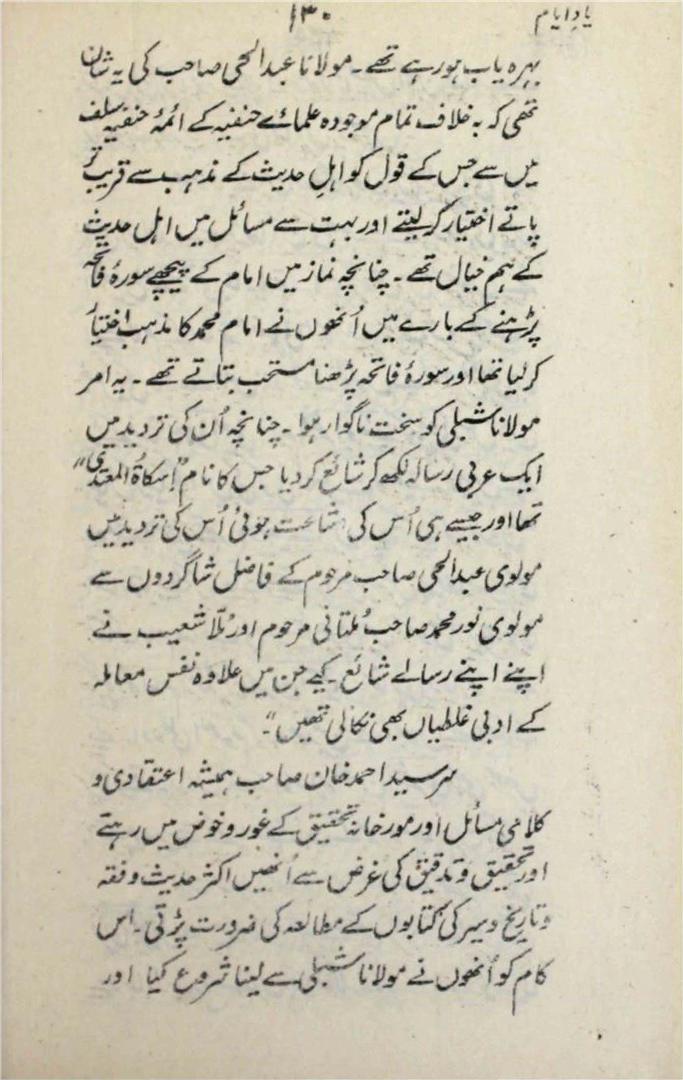 یادِ ایام
۱۳۰
بہرہ یاب ہورہے تھے۔ مولانا عبدالحی صاحب کی یہ شان
تھی کہ بہ خلاف تمام موجودہ علمائے حنفیہ کے ائمۂ حنفیہ سلف
میں سے جس کے قول کو اہلِ حدیث کے مذہب سے قریب تر
پاتے اختیار کرلیتے اور بہت سے مسائل میں اہل حدیث
کے ہم خیال تھے۔ چنانچہ نماز میں امام کے پیچھے سورۂ فاتحہ
پڑہنے کے بارے میں اُنھوں نے امام محمد کا مذہب اختیار
کرلیا تھا اور سورۂ فاتحہ پڑھنا مستحب بتاتے تھے۔ یہ امر
مولانا شبلی کو سخت ناگوار ہوا۔ چنانچہ اُن کی تردید میں
ایک عربی رسالہ لکھ کر شائع کردیا جس کا نام "اِسکاۃُ المعتدی"
تھا اور جیسے ہی اُس کی اشاعت ہوئی اُس کی تردید میں
مولوی عبدالحی صاحب مرحوم کے فاضل شاگردوں سے
مولوی نور محمد صاحب مُلتانی مرحوم اور مُلّا شعیب نے
اپنے اپنے رسالے شائع۔ کیے جن میں علاوہ نفس معاملہ
کے ادبی غلطیاں بھی نکالی تھیں"۔
سر سید احمد خان صاحب ہمیشہ اعتقادی و
کلامی مسائل اور مورخانہ تحقیق کے غور و خوض میں رہتے
اور تحقیق و تدقیق کی غرض سے اُنھیں اکثر حدیث و فقہ
و تاریخ و سیر کی کتابوں کے مطالعہ کی ضرورت پڑتی۔ اس
کام کو اُنھوں نے مولانا شبلی سے لینا شروع کیا اور